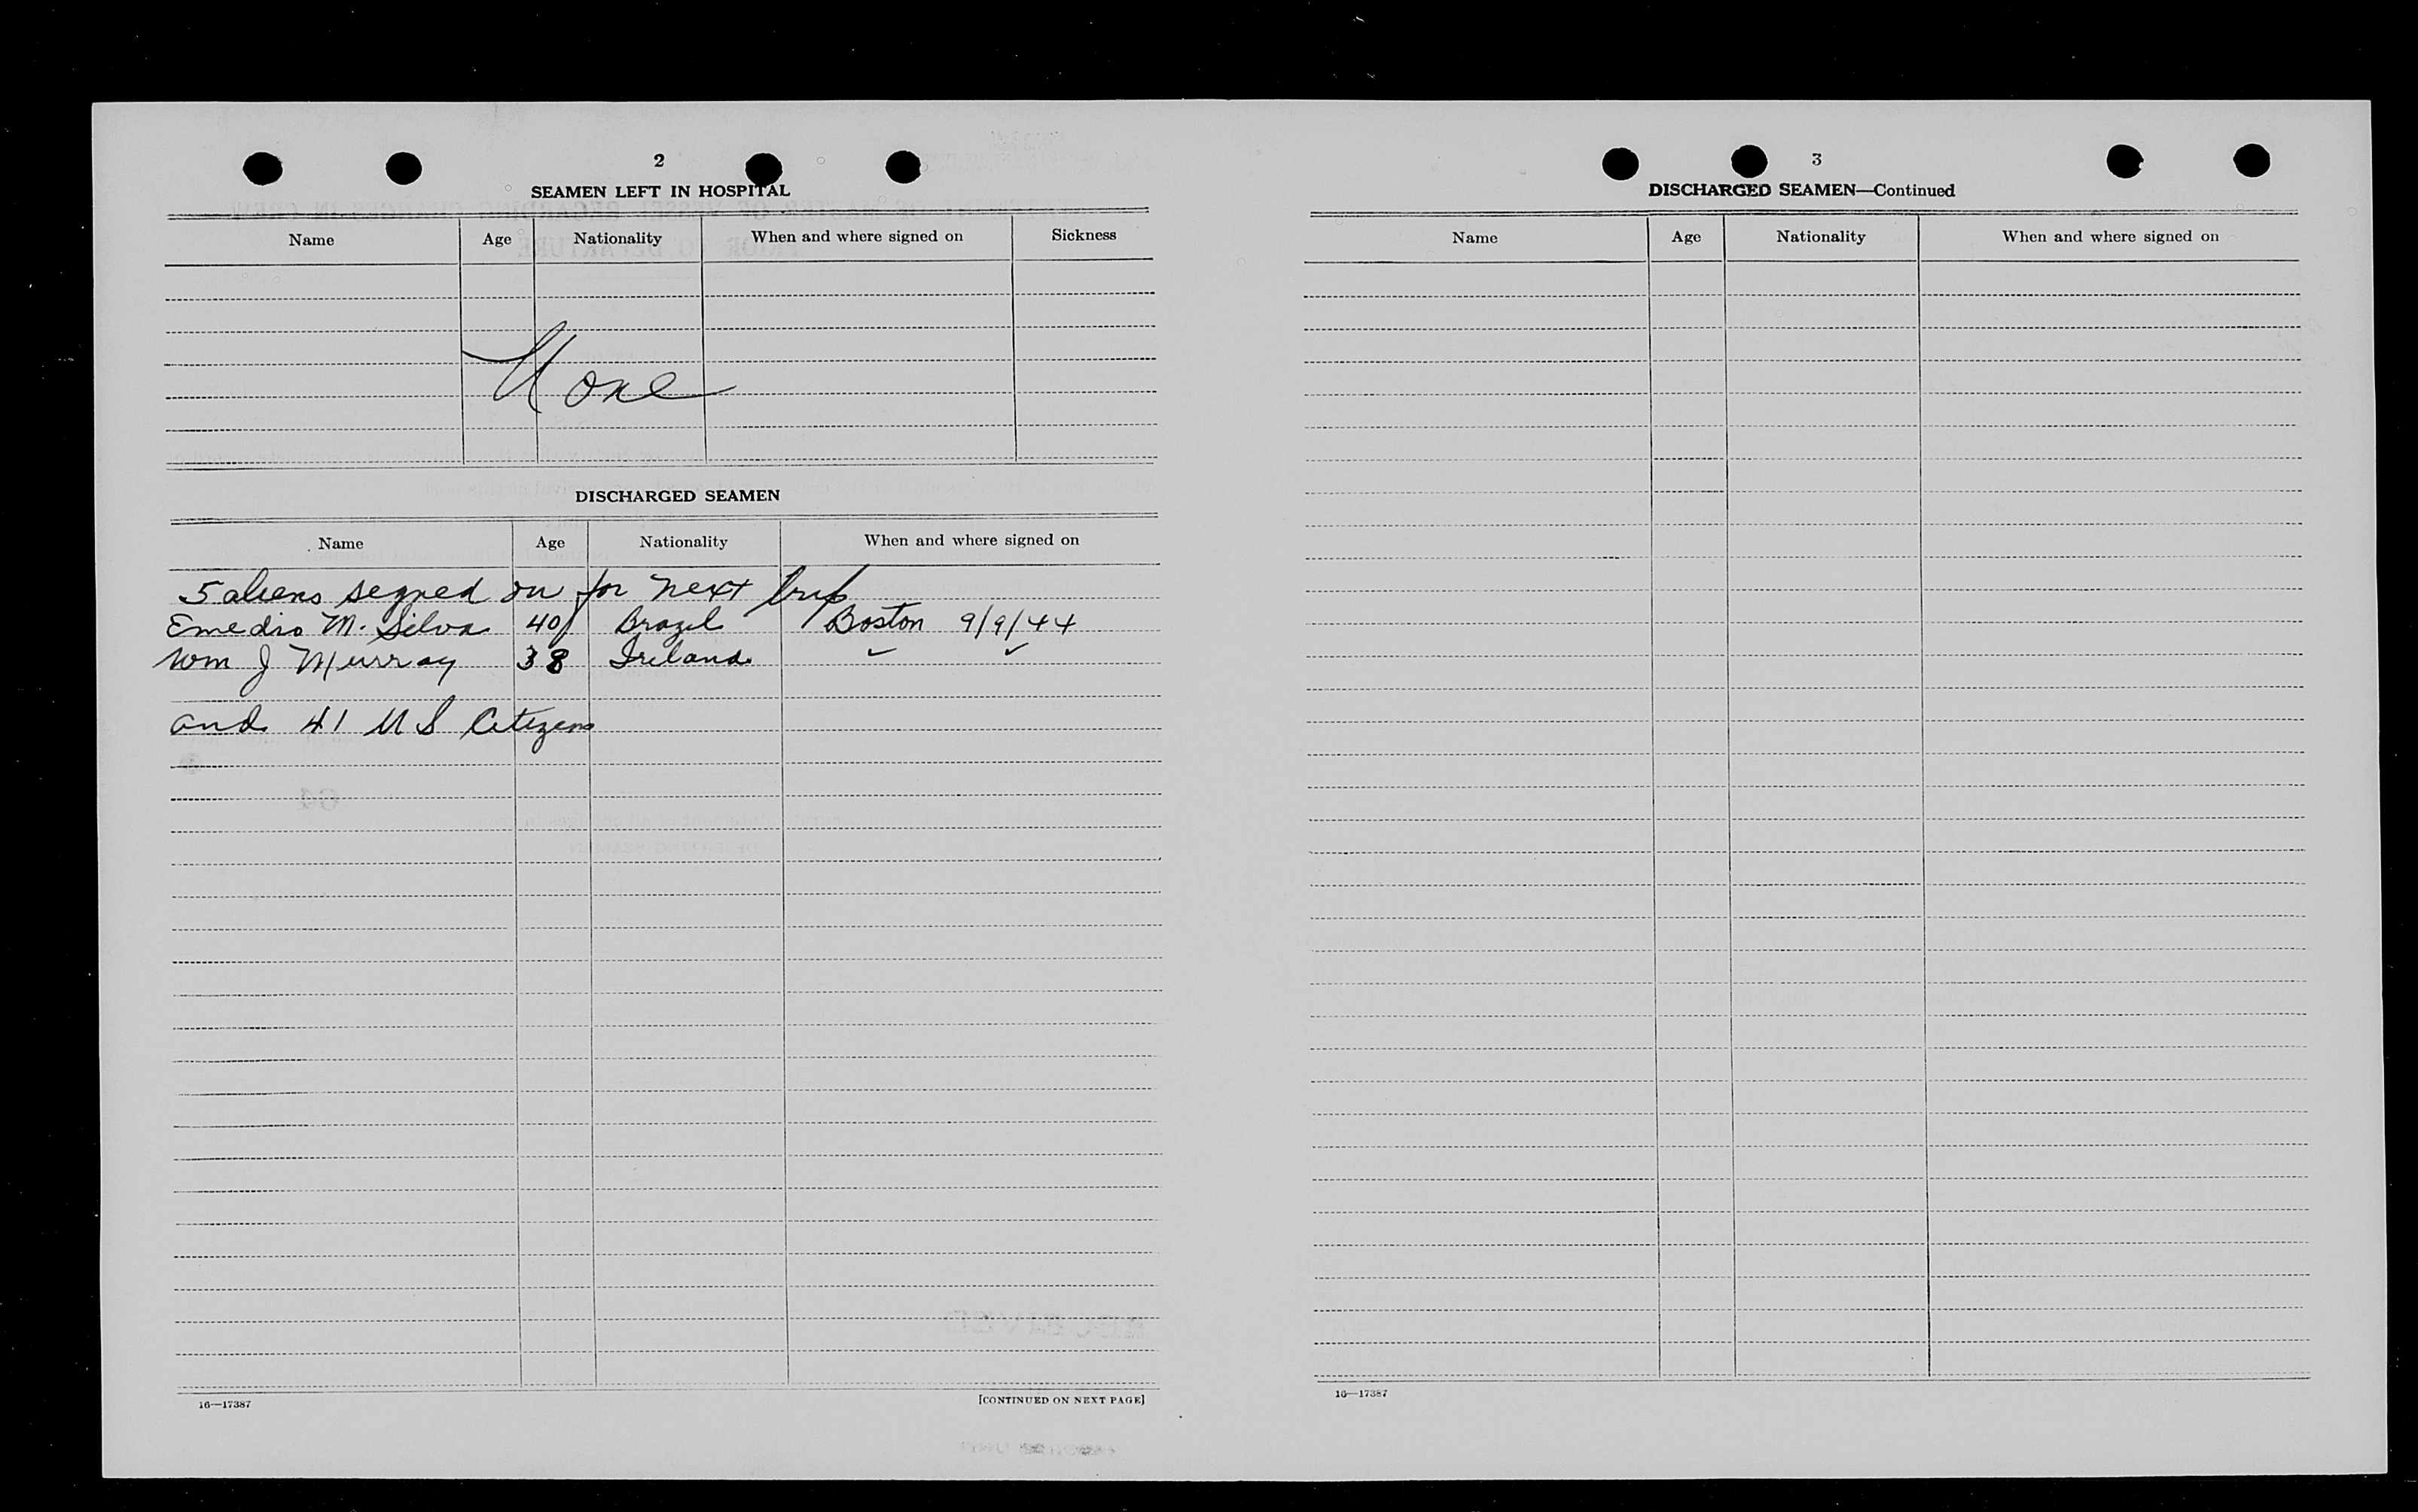 2
SEAMEN LEFT IN HOSPITAL
Name Age Nationality When and where signed on Sickness
None
DISCHARGED SEAMEN
Name Age Nationality When and where signed on
5 aliens signed on for next trip
Emedio M. Silva 40 Brazil Boston 9/9/44
Wm J Murray 38 Ireland ✓ ✓
and 41 U S Citizens
16—17387
[CONTINUED ON NEXT PAGE]
3
DISCHARGED SEAMEN—Continued
Name Age Nationality When and where signed on
16—17387